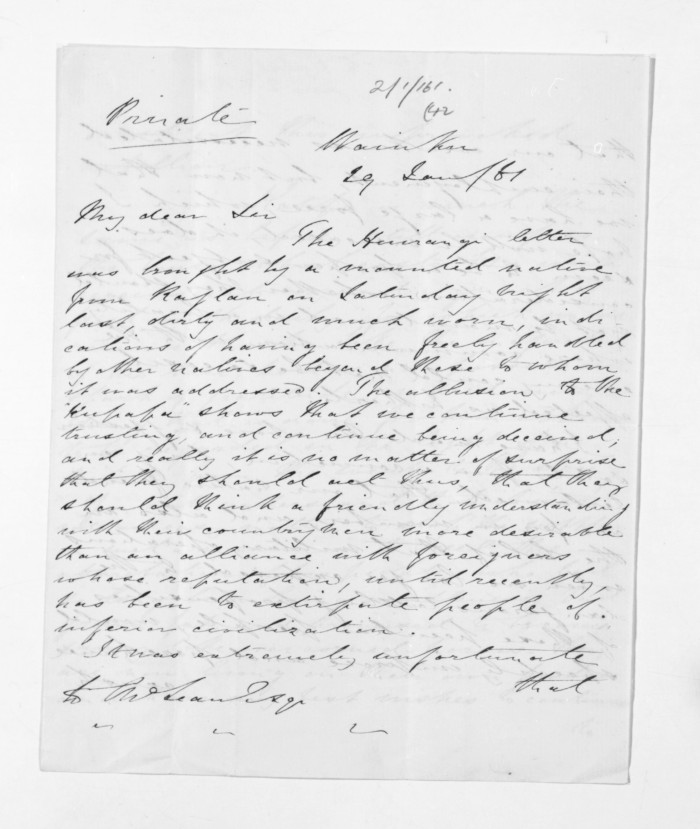 2/1/161.
Private
Waiuku
29 Jan/61
My dear Sir
The Huirangi letter
was brought by a mounted native
from Raglan on Saturday night
last, dirty and much worn, indi
cations of having been freely handled
by other natives beyond those to whom
it was addressed. The allusion to the
"Kupapa" shows that we continue
trusting, and continue being deceived,
and really it is no matter of surprise
that they should act thus, that they
should think a friendly understanding
with their countrymen more desirable
than an alliance with foreigners
whose reputation, until recently,
has been to extirpate people of
inferior civilization.
It was extremely unfortunate
that
to McLean Esqr